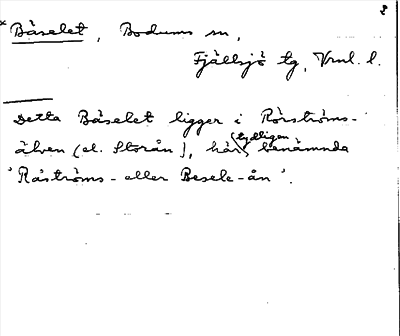 * Båselet, Bodums sn,
Fjällsjö tg, Vrnl. l.
Detta Båselet ligger i Rörströms-
älven (el. Storån), här tydligen benämnda
'Råströms- eller Besele-ån'.